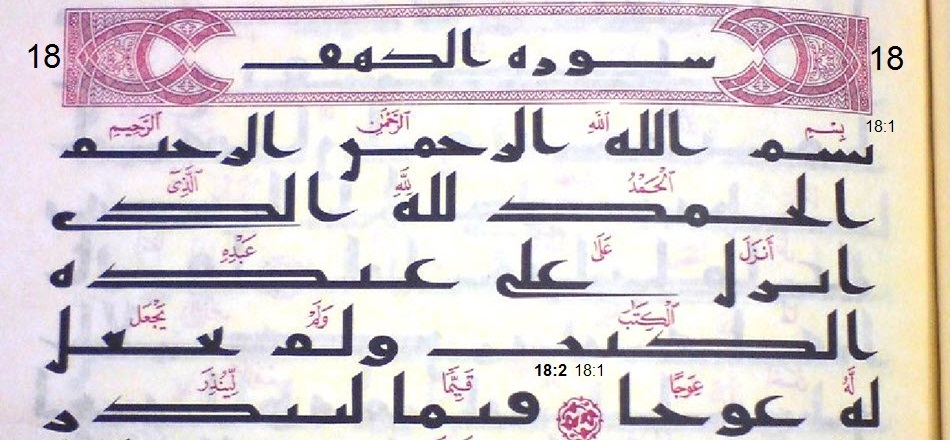 18 سوره الكهف 18
بِسْمِ اللّٰهِ الرَّحْمٰنِ الرَّحِيمِ 18:1
بسم الله الرحمن الرحيم
اَلْحَمْدُ لِلّٰهِ الَّذِىٓ
الحمد لله الذى
أَنْزَلَ عَلٰى عَبْدِهِ
انزل على عبده
الْكِتٰبَ وَلَمْ يَجْعَلْ
الكتب ولم يجعل
لَهُ عِوَجًا 18:1 18:2 قَيِّمًا لِّيُنْذِرَ
له عوجا قيما لينذر